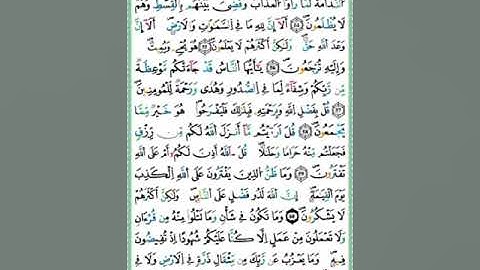 ٱلنَّدَامَةَ لَمَّا رَأَوُاْ ٱلْعَذَابَ وَقُضِىَ بَيْنَهُم بِٱلْقِسْطِ وَهُمْ
لَا يُظْلَمُونَ ۖ أَلَآ إِنَّ لِلهِ مَا فِى ٱلسَّمَٰوَٰتِ وَٱلَارْضِ ۖ أَلَآ إِنَّ
وَعْدَ ٱللَّهِ حَقٌّ ۖ وَلَٰكِنَّ أَكْثَرَهُمْ لَا يَعْلَمُونَ ۖ هُوَ يُحْىِۦ وَيُمِيتُ
وَإِلَيْهِ تُرْجَعُونَ ۖ يَٰٓأَيُّهَا ٱلنَّاسُ قَدْ جَآءَتْكُم مَّوْعِظَةٌ
مِّن رَّبِّكُمْ وَشِفَآءٌ لِّمَا فِى ٱلصُّدُورِ وَهُدًى وَرَحْمَةٌ لِّلْمُومِنِينَ ۖ
قُلْ بِفَضْلِ ٱللَّهِ وَبِرَحْمَتِهِۦ فَبِذَٰلِكَ فَلْيَفْرَحُواْ هُوَ خَيْرٌ مِّمَّا
يَجْمَعُونَ ۖ قُلَ اَرَٰٓيْتُم مَّآ أَنزَلَ ٱللَّهُ لَكُم مِّن رِّزْقٍ
فَجَعَلْتُم مِّنْهُ حَرَامًا وَحَلَٰلًا قُلَ ـ آللَّهُ أَذِنَ لَكُمُۥٓ أَمْ عَلَى ٱللَّهِ
تَفْتَرُونَ ۖ وَمَا ظَنُّ ٱلذِينَ يَفْتَرُونَ عَلَى ٱللَّهِ ٱلْكَذِبَ
يَوْمَ ٱلْقِيَٰمَةِ ۖ إِنَّ ٱللَّهَ لَذُو فَضْلٍ عَلَى ٱلنَّاسِ ۖ وَلَٰكِنَّ أَكْثَرَهُمْ
لَا يَشْكُرُونَ ۖ وَمَا تَكُونُ فِى شَأْنٍ وَمَا تَتْلُواْ مِنْهُ مِن قُرْءَانٍ
وَلَا تَعْمَلُونَ مِنْ عَمَلٍ اِلَّا كُنَّا عَلَيْكُمْ شُهُودًا اِذْ تُفِيضُونَ
فِيهِ ۖ وَمَا يَعْزُبُ عَن رَّبِّكَ مِن مِّثْقَالِ ذَرَّةٍ فِى ٱلَارْضِ وَلَا فِى